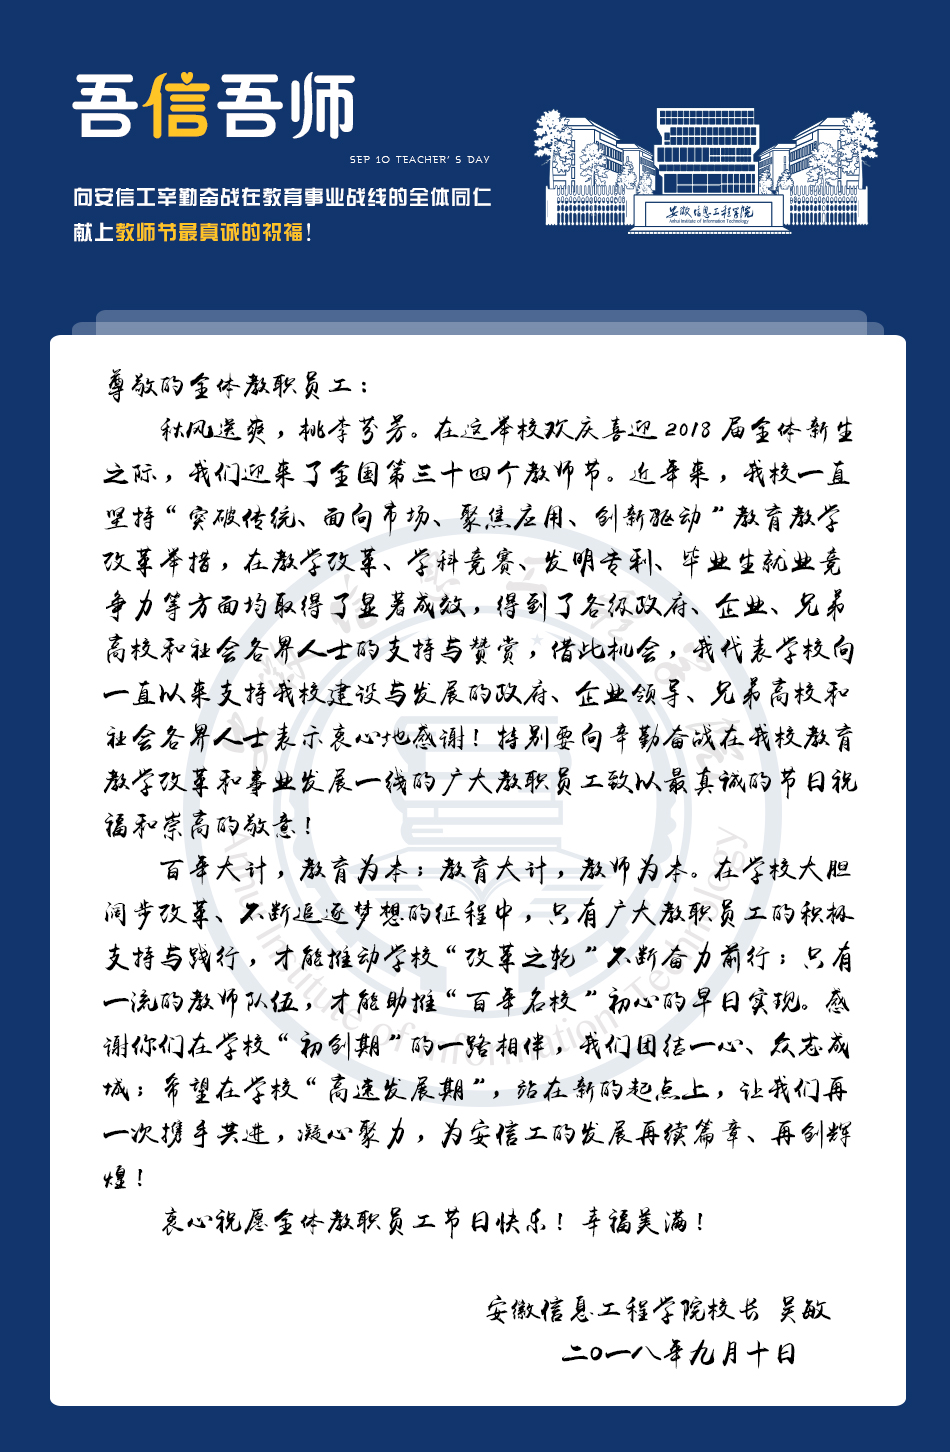 吾信吾师
SEP 10 TEACHER' S DAY
向安信工辛勤奋战在教育事业战线的全体同仁
献上教师节最真诚的祝福！
安徽信息工程学院
Anhui Institute of Information Technology
尊敬的全体教职员工：
秋风送爽，桃李芬芳。在这举校欢庆喜迎 2018 届全体新生
之际，我们迎来了全国第三十四个教师节。近年来，我校一直
坚持“突破传统、面向市场、聚焦应用、创新驱动”教育教学
改革举措，在教学改革、学科竞赛、发明专利、毕业生就业竞
争力等方面均取得了显著成效，得到了各级政府、企业、兄弟
高校和社会各界人士的支持与赞赏，借此机会，我代表学校向
一直以来支持我校建设与发展的政府、企业领导、兄弟高校和
社会各界人士表示衷心地感谢！特别要向辛勤奋战在我校教育
教学改革和事业发展一线的广大教职员工致以最真诚的节日祝
福和崇高的敬意！
百年大计，教育为本；教育大计，教师为本。在学校大胆
阔步改革、不断追逐梦想的征程中，只有广大教职员工的积极
支持与践行，才能推动学校“改革之轮”不断奋力前行；只有
一流的教师队伍，才能助推“百年名校”初心的早日实现。感
谢你们在学校“初创期”的一路相伴，我们团结一心、众志成
城；希望在学校“高速发展期”，站在新的起点上，让我们再
一次携手共进，凝心聚力，为安信工的发展再续篇章、再创辉
煌！
衷心祝愿全体教职员工节日快乐！幸福美满！
安徽信息工程学院校长 吴敏
二〇一八年九月十日
Anhui Institute of Information Technology